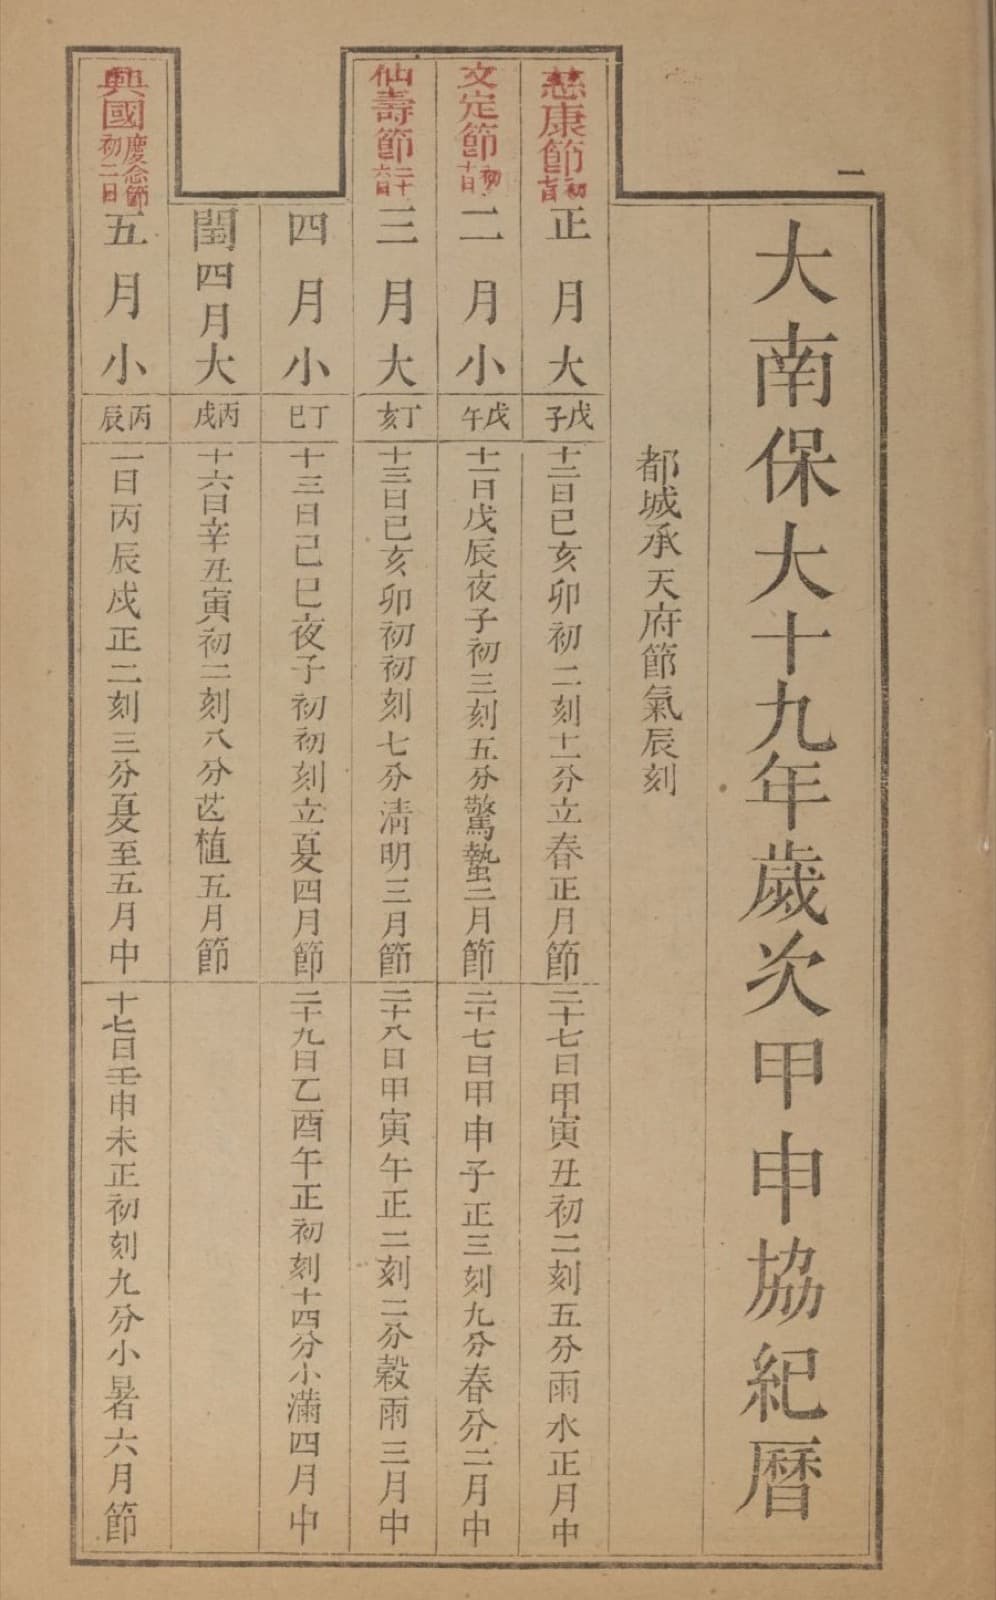 二
大南保大十九年歲次甲申協紀暦
都城承天府節氣辰刻
慈康節初日
正月大
戊子
十二日己亥卯初二刻十一分立春正月節
二十七日甲寅丑初二刻五分雨水正月中
文定節初十日
二月小
戊午
十一日戊辰夜子初三刻五分驚蟄二月節
二十七日甲申子正三刻九分春分二月中
仙壽節二十六日
三月大
丁亥
十三日己亥卯初初刻七分清明三月節
二十八日甲寅午正二刻二分穀雨三月中
四月小
丁巳
十三日己巳夜子初初刻立夏四月節
二十九日乙酉午正初刻十四分小滿四月中
閏四月大
丙戌
十六日辛丑寅初二刻八分芒植五月節
興國慶念節初二日
五月小
丙辰
一日丙辰戌正二刻三分夏至五月中
十七日壬申未正初刻九分小暑六月節